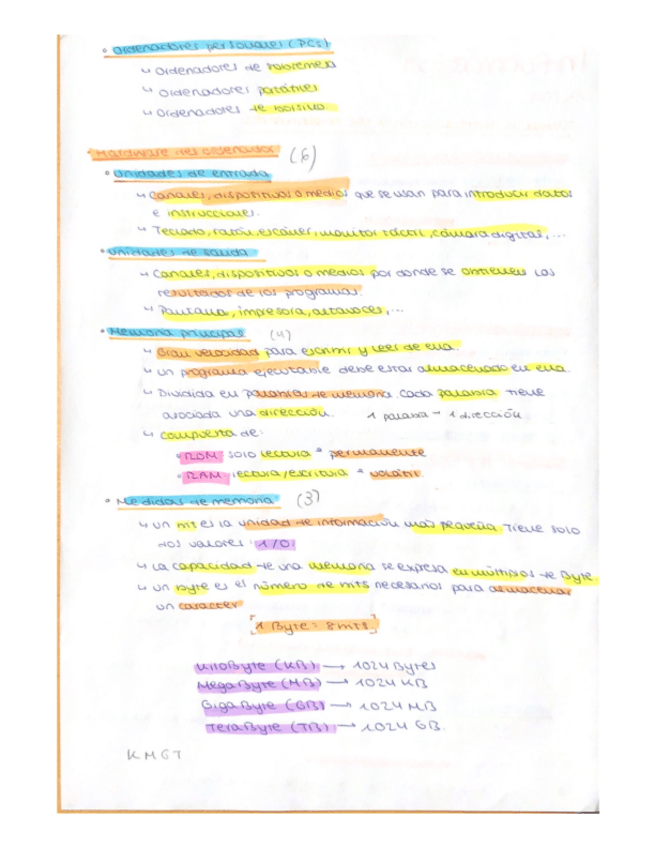 • Ordenadores personales (PCs)
↳ Ordenadores de sobremesa
↳ Ordenadores portátiles
↳ Ordenadores de bolsillo.
• Hardware del ordenador (6)
• Unidades de entrada
↳ Canales, dispositivos o medios que se usan para introducir datos
e instrucciones.
↳ Teclado, ratón, escáner, monitor táctil, cámara digital,...
• Unidades de salida
↳ Canales, dispositivos o medios por donde se obtienen los
resultados de los programas.
↳ Pantalla, impresora, altavoces,...
• Memoria principal (4)
↳ Gran velocidad para escribir y leer de ella.
↳ Un programa ejecutable debe estar almacenado en ella.
↳ Dividida en palabras de memoria. Cada palabra tiene
asociada una dirección. 1 palabra - 1 dirección
↳ Compuesta de:
• ROM solo lectura = permanente
• RAM lectura/escritura = volátil.
• Medidas de memoria (3)
↳ Un bit es la unidad de información más pequeña. Tiene solo
dos valores: 1/0
↳ La capacidad de una memoria se expresa en múltiplos de Byte.
↳ Un byte es el número de bits necesarios para almacenar
un caracter
[1 Byte = 8 bits.]
KiloByte (KB) → 1024 Bytes
MegaByte (MB) → 1024 KB
GigaByte (GB) → 1024 MB
TeraByte (TB) → 1024 GB.
KMGT